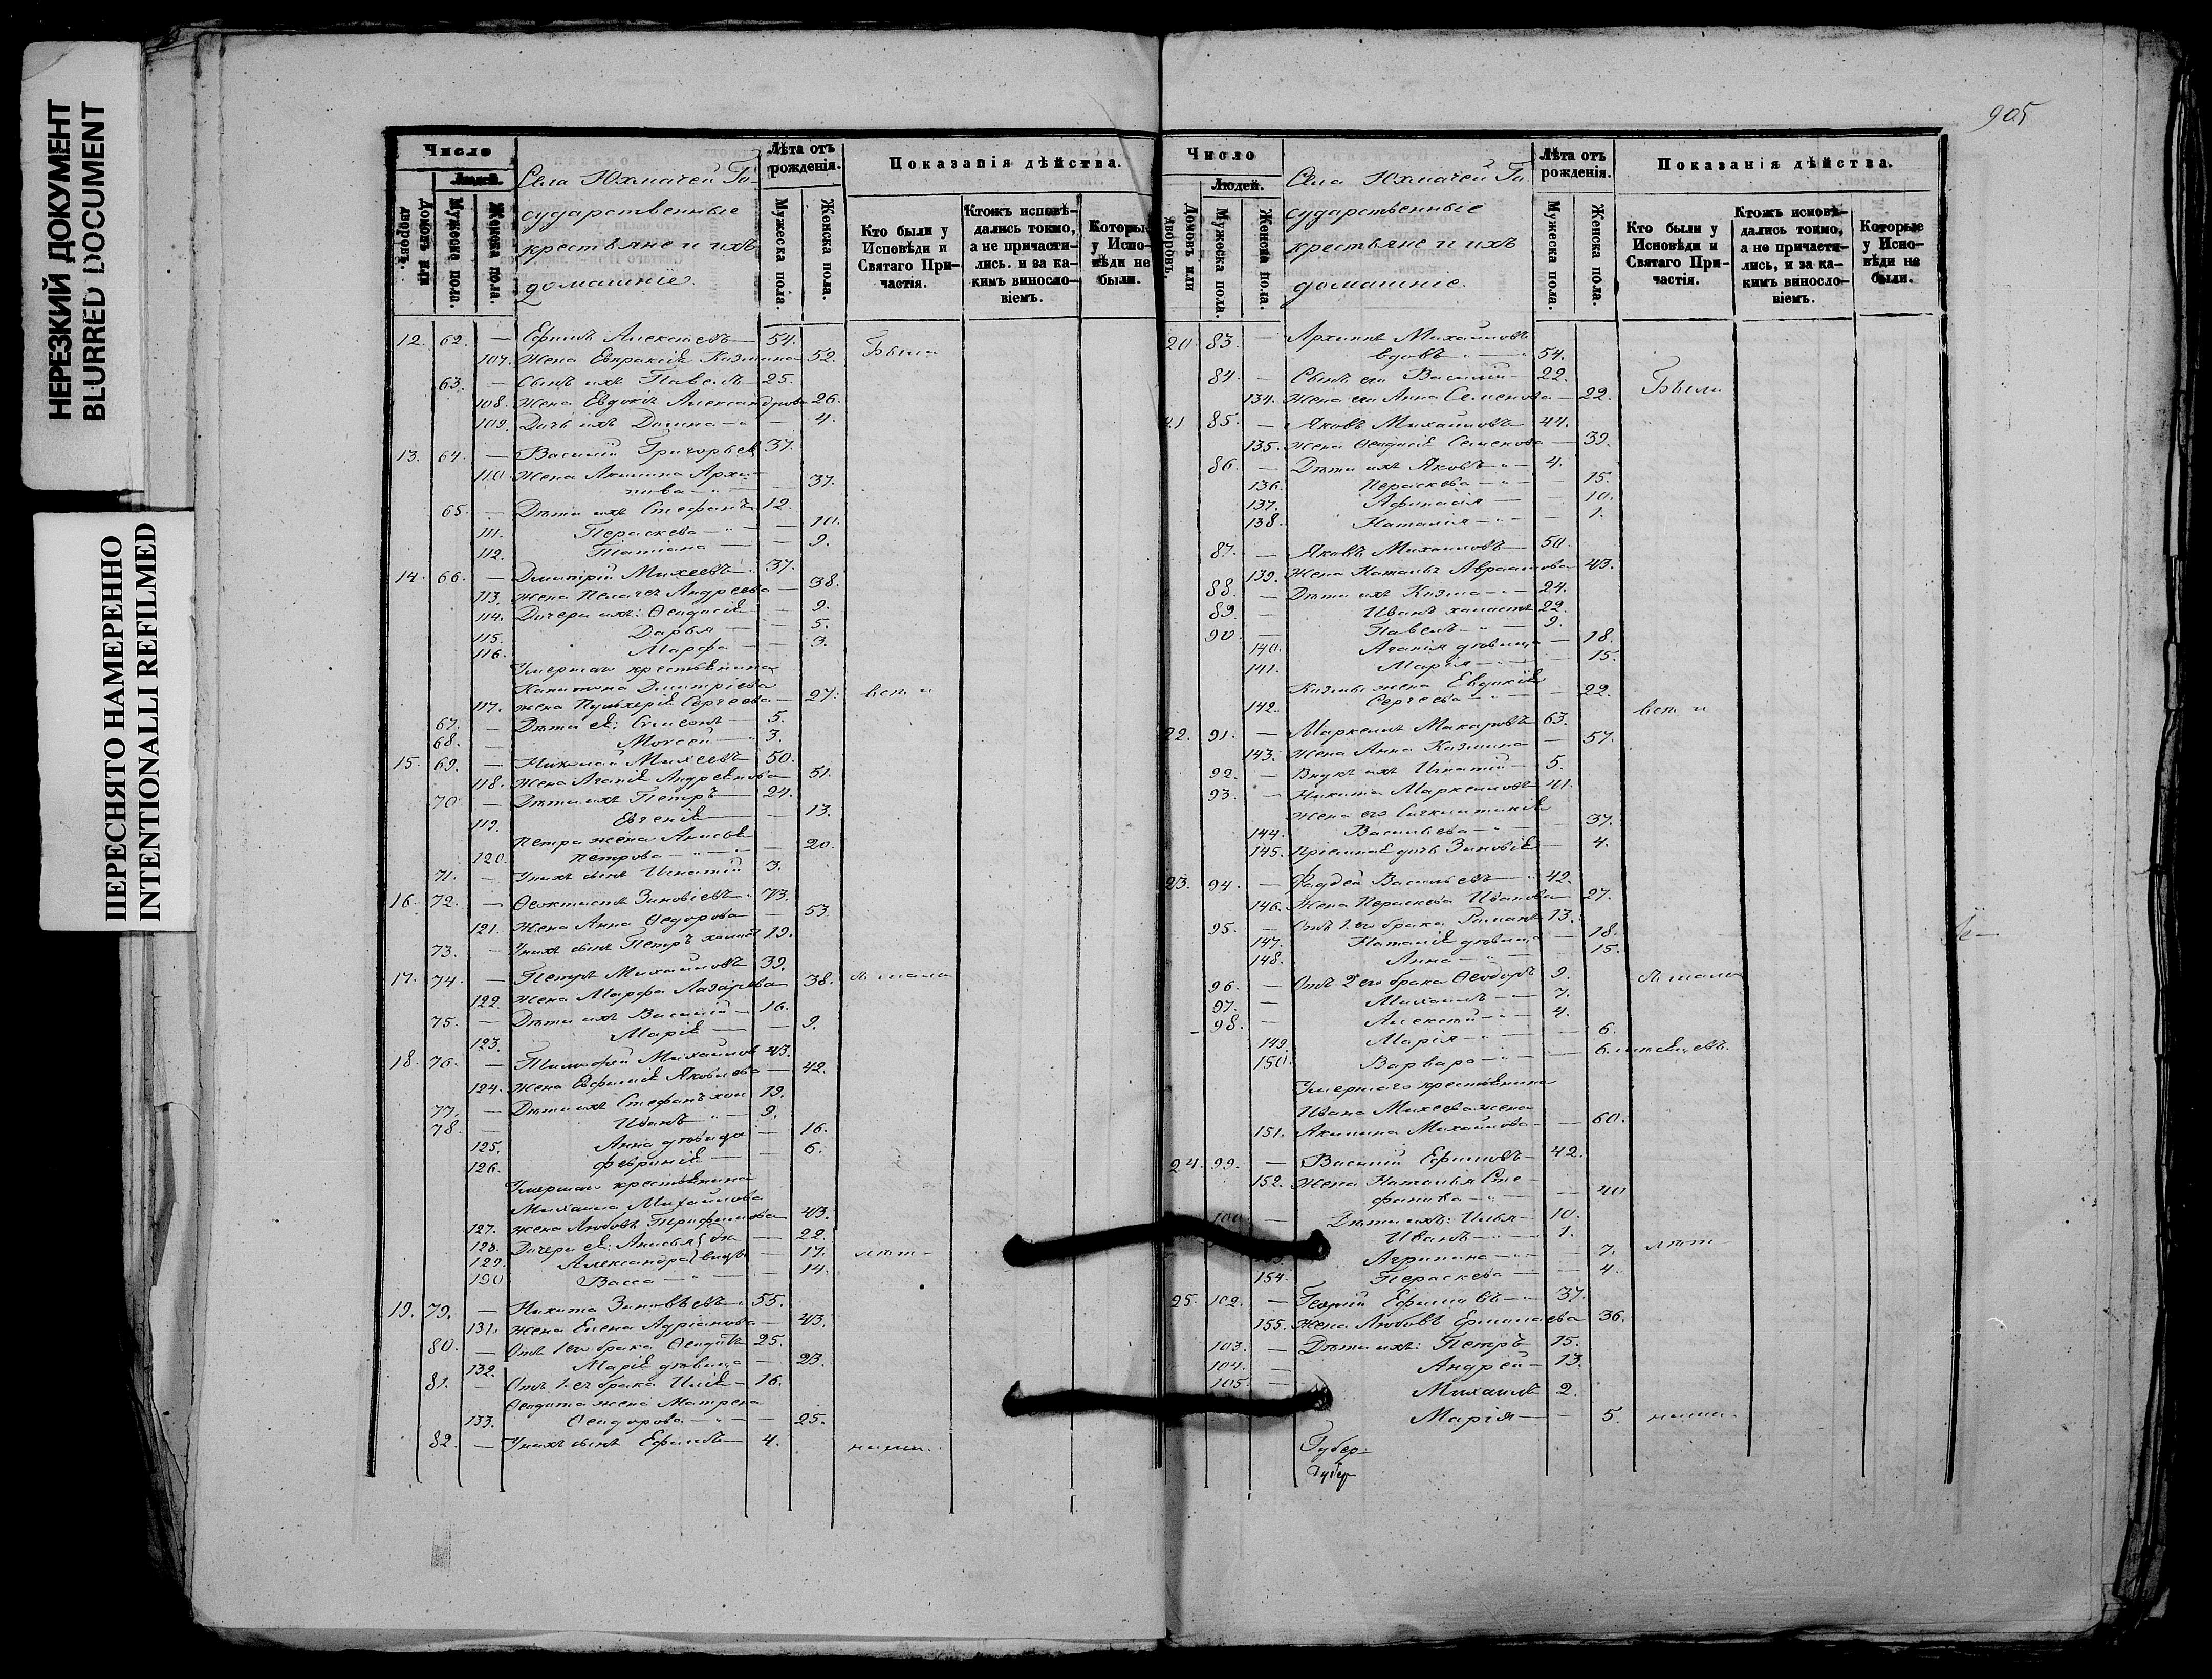 НЕРЕЗКИЙ ДОКУМЕНТ
BLURRED DOCUMENT
ПЕРЕСНЯТО НАМЕРЕННО
INTENTIONALLI REFILMED
Число
Людей.
Домовъ или дворовъ.
Мужеска пола.
Женска пола.
Села Юхмачей Го-
сударственные
крестьяне и ихъ
домашніе.
Лѣта отъ рожденія.
Мужеска пола.
Женска пола.
Показанія дѣйства.
Кто были у Исповѣди и Святаго Причастія.
Ктожъ исповѣ-
дались токмо,
а не причасти-
лись. и за ка-
кимъ винosло-
віемъ.
Которые
у Испо-
вѣди не
были.
12. 62. — Ефимъ Алексѣевъ — 54.
107. Жена Евпраксія Козмина — 52. Были
63. — Сынъ ихъ Павелъ — 25.
108. Жена Евдокія Александрова 26.
109. Дочь ихъ Домна — 4.
13. 64. — Василій Григорьевъ 37.
110. Жена Акилина Архи-
пова — 37.
65. — Дѣти ихъ Стефанъ 12.
111. Параскева — 10.
112. Татіана — 9.
14. 66. — Дмитрій Михеевъ 37.
113. Жена Пелагея Андреева — 38.
114. Дочери ихъ: Ѳеодосія — 9.
115. Дарья — 5.
116. Марфа — 3.
Умершаго крестьянина
Капитона Дмитріева
117. жена Пульхерія Сергеева — 27. всп. и
67. — Дѣти ея: Симеонъ — 5.
68. — Моисей — 3.
15. 69. — Николай Михеевъ 50.
118. Жена Агафія Андреянова 51.
70. — Дѣти ихъ Петръ 24.
119. Евгенія — 13.
Петра жена Анисья
120. Петрова — 20.
71. — У нихъ сынъ Игнатій 3.
16. 72. — Ѳеоктистъ Зиновіевъ 73.
121. Жена Анна Ѳедорова — 53.
73. — У нихъ сынъ Петръ холост 19.
17. 74. — Петръ Михайловъ 39.
122. Жена Марфа Лазарева 38.
75. — Дѣти ихъ Василій — 16.
123. Марія — 9.
18. 76. — Тимофей Михайлов 43.
124. Жена Евфимія Яковлева — 42.
77. — Дѣти ихъ Стефанъ хол 19.
78. — Иванъ — 9.
125. Анна дѣвица — 16.
126. Февронія — 6.
Умершаго крестьянина
Михаила Михайлова
127. жена Любовь Трифонова 43.
128. Дочери ея: Анисья — 22.
129. Александра — 17.
130 Васса — 14.
19. 79. — Никита Зиновьевъ 55.
131. Жена Елена Адріанова — 43.
80. — Отъ 1 его брака 25.
132. Марія дѣвица — 23.
81. — Отъ 1. ея брака Илія — 16.
жена Матрена
133. Ѳеодорова — 25.
82. — У нихъ сынъ Ефимъ — 4.
905
Число
Людей.
Домовъ или дворовъ.
Мужеска пола.
Женска пола.
Села Юхмачей Го-
сударственные
крестьяне и ихъ
домашніе.
Лѣта отъ рожденія.
Мужеска пола.
Женска пола.
Показанія дѣйства.
Кто были у Исповѣди и Святаго Причастія.
Ктожъ исповѣ-
дались токмо,
а не причасти-
лись, и за ка-
кимъ винosло-
віемъ.
Которые
у Испо-
вѣди не
были.
20. 83. — Архиппъ Михайловъ
вдовъ — 54.
84. — Сынъ его Василій — 22. Были
134. Жена его Анна Семенова — 22.
21 85. — Яковъ Михайловъ 44.
135. Жена Ѳеодосія Семенова — 39.
86. — Дѣти ихъ Яковъ — 4.
136. Параскева — 15.
137. Афанасія — 10.
138. Наталія — 1.
87. — Яковъ Михайловъ — 50.
139. Жена Наталья Авраамова 43.
88. — Дѣти ихъ Козма — 24.
89. — Иванъ холостъ 22.
90. — Павелъ — 9.
140. Агафія дѣвица — 18.
141. Марія — 15.
Козмы жена Евдокія
142. Сергеева — 22. всп. и
22. 91. — Маркеллъ Макаровъ 63.
143. Жена Анна Козмина — 57.
92. — Внукъ ихъ Игнатій — 5.
93. — Никита Маркелловъ 41.
Жена его
144. Васильева — 37.
145. Пріемная дочь Зиновія — 4.
23. 94. — Фаддей Васильевъ 42.
146. Жена Параскева Иванова 27.
95. — Отъ 1. его брака Романъ 13.
147. Наталія дѣвица — 18.
148. Анна — 15.
96. — Отъ 2 его брака Ѳеодоръ 9.
97. — Михаилъ — 7.
98. — Алексѣй — 4.
149. Марія — 6.
150. Варвара — 6. мѣсяцевъ.
Умершаго крестьянина
Ивана Михеева жена
151. Акилина Михайлова — 60.
24. 99. — Василій Ефимовъ 42.
152. Жена Наталья Сте-
фанова — 40
100 — Дѣти ихъ: Илья — 10.
Иванъ — 1.
Агрипина — 7.
154. Параскева — 4.
25. 102. — Георгій Ефимовъ — 37.
155. Жена Любовь Ермолаева 36.
103. — Дѣти ихъ: Петръ 15.
104. — Андрей — 13.
105. — Михаилъ 2.
Марія — 5.
Губер-
Губер